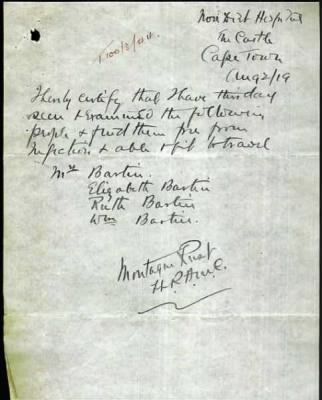 Hospital
The Castle
Cape Town
Aug 2/19
I hereby certify that I have this day
seen & examined the following
people & find them free from
infection & able & fit to travel
Mrs Bartin.
Elizabeth Bartin
Ruth Bartin
Wm Bartin.
Montague